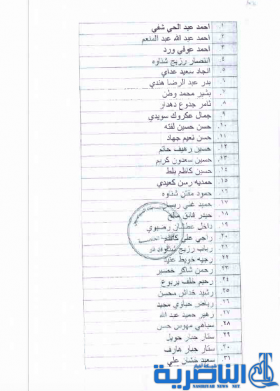 ١ احمد عبد الحي شفي
٢ احمد عبد الله عبد المنعم
٣ احمد عوفي ورد
٤ انتصار رزيج شناوه
٥ انجاد سعيد عداي
٦ بدر عبد الرضا هندي
٧ بشير محمد وطن
٨ ثامر جدوع دهدار
٩ جمال عكروك سويدي
١٠ حسن حسين لفته
١١ حسن نعيم جهاد
١٢ حسين رهيف حاتم
١٣ حسين سعدون كريم
١٤ حسين كاظم بلط
١٥ حمديه رسن كعيدي
١٦ حمود مكان شناوه
١٧ حميد غني
١٨ حيدر فائق صالح
١٩ داخل عطشان رضيوي
٢٠ راجي علي كاظم
٢١ رباب رزيج
٢٢ رجيه حويط عليه
٢٣ رحمن شاكر خضير
٢٤ رحيم خلف يربوع
٢٥ رشيد خداش محسن
٢٦ رياض حياوي مجيد
٢٧ زهير حميد عبد
٢٨ سباهي مهوس حسن
٢٩ ستار جبار حويل
٣٠ ستار جبار عارف
٣١ سعيد علي
الناصرية
NASIRIYAH.ORG